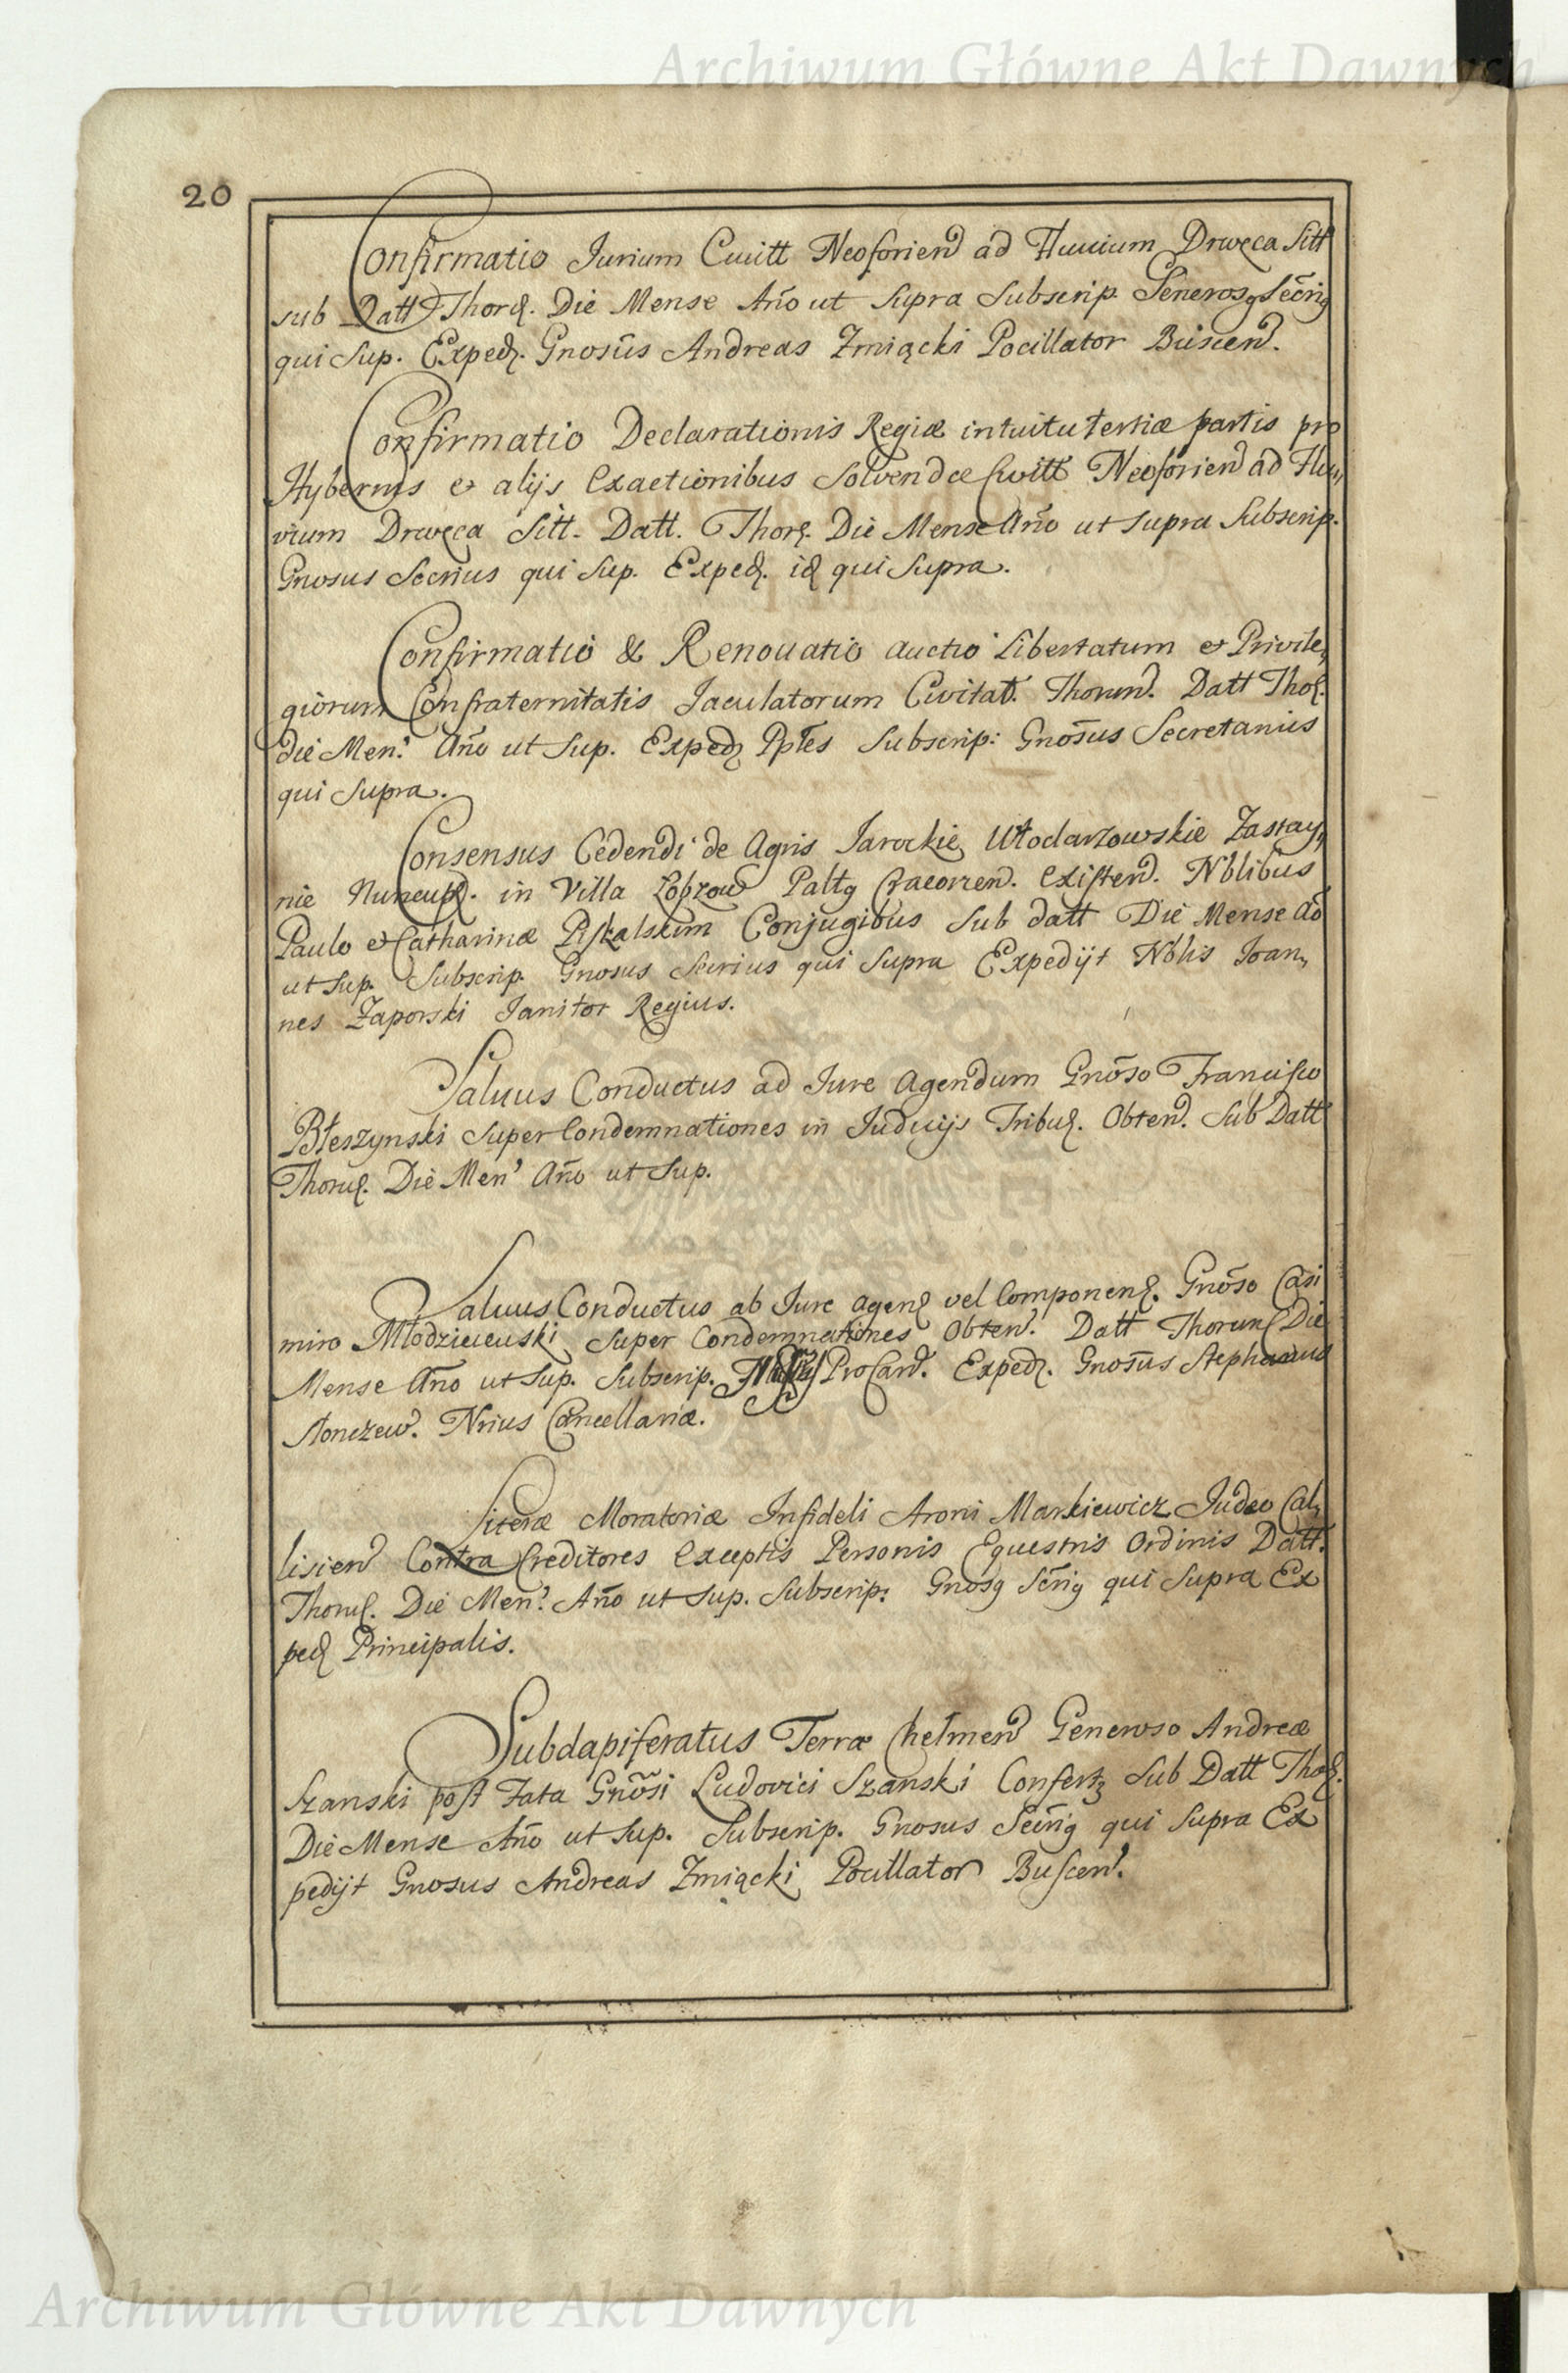 Archiwum Główne Akt Dawnych
20
Confirmatio Jurium Civitt Neoforien ad Fluvium Drwęca Sitt
sub Datt Thorȩ. Die Mense Año ut Supra Subscrip. Generosq Secriq
qui Sup. Exped. Gnosūs Andreas Zmiącki Pocillator Buscen.
Confirmatio Declarationis Regiæ intuitu tertiæ partis pro
Hybernis et alijs Exactionibus Solvendæ Civitt Neoforien ad Flu„
vium Drwęca Sitt. Datt. Thor. Die Mense Año ut supra Subscrip.
Gnosus Secrius qui Sup. Exped. id qui Supra.
Confirmatio & Renovatio auctio Libertatum et Privile„
giorum Confraternitatis Jaculatorum Civitat. Thorun. Datt Thor.
die Men: Año ut Sup. Exped Pptes Subscrip: Gnosus Secretarius
qui Supra.
Consensus Cedendi de Agris Jarockie Włodarzowskie Zastay„
nie Nuncup. in Villa Łobzow Paltq Cracovien. Existen. Nblibus
Paulo et Catharinæ Piskalskim Conjugibus Sub datt Die Mense Aō
ut Sup. Subscrip. Gnosus Secrius qui Supra Expedijt Nblis Joan„
nes Zaporski Janitor Regius.
Salvus Conductus ad Jure Agendum Gnōso Francisco
Błeszynski Super Condemnationes in Judicijs Tribul. Obten. Sub Datt
Thorun. Die Men' Año ut Sup.
Salvus Conductus ab Jure agen vel Componen. Gnōso Casi
miro Młodzieiewski Super Condemnationes Obten. Datt Thorun Die
Mense Año ut Sup. Subscrip. ProCan. Exped. Gnosūs Stephanus
Słonczew. Nrius Cancellariæ.
Literæ Moratoriæ Infideli Aroni Markiewicz Judæo Cal„
lisien Contra Creditores Exceptis Personis Equestris Ordinis Datt.
Thorun. Die Men: Año ut Sup. Subscrip: Gnosq Sēriq qui Supra Ex
ped Principalis.
Subdapiferatus Terræ Chelmen Generoso Andreæ
Szanski post Fata Gnōsi Ludovici Szanski Confertz Sub Datt Thor.
Die Mense Año ut Sup. Subscrip. Gnosus Secriq qui Supra Ex
pedijt Gnosus Andreas Zmiącki Pocillator Buscen.
Archiwum Główne Akt Dawnych